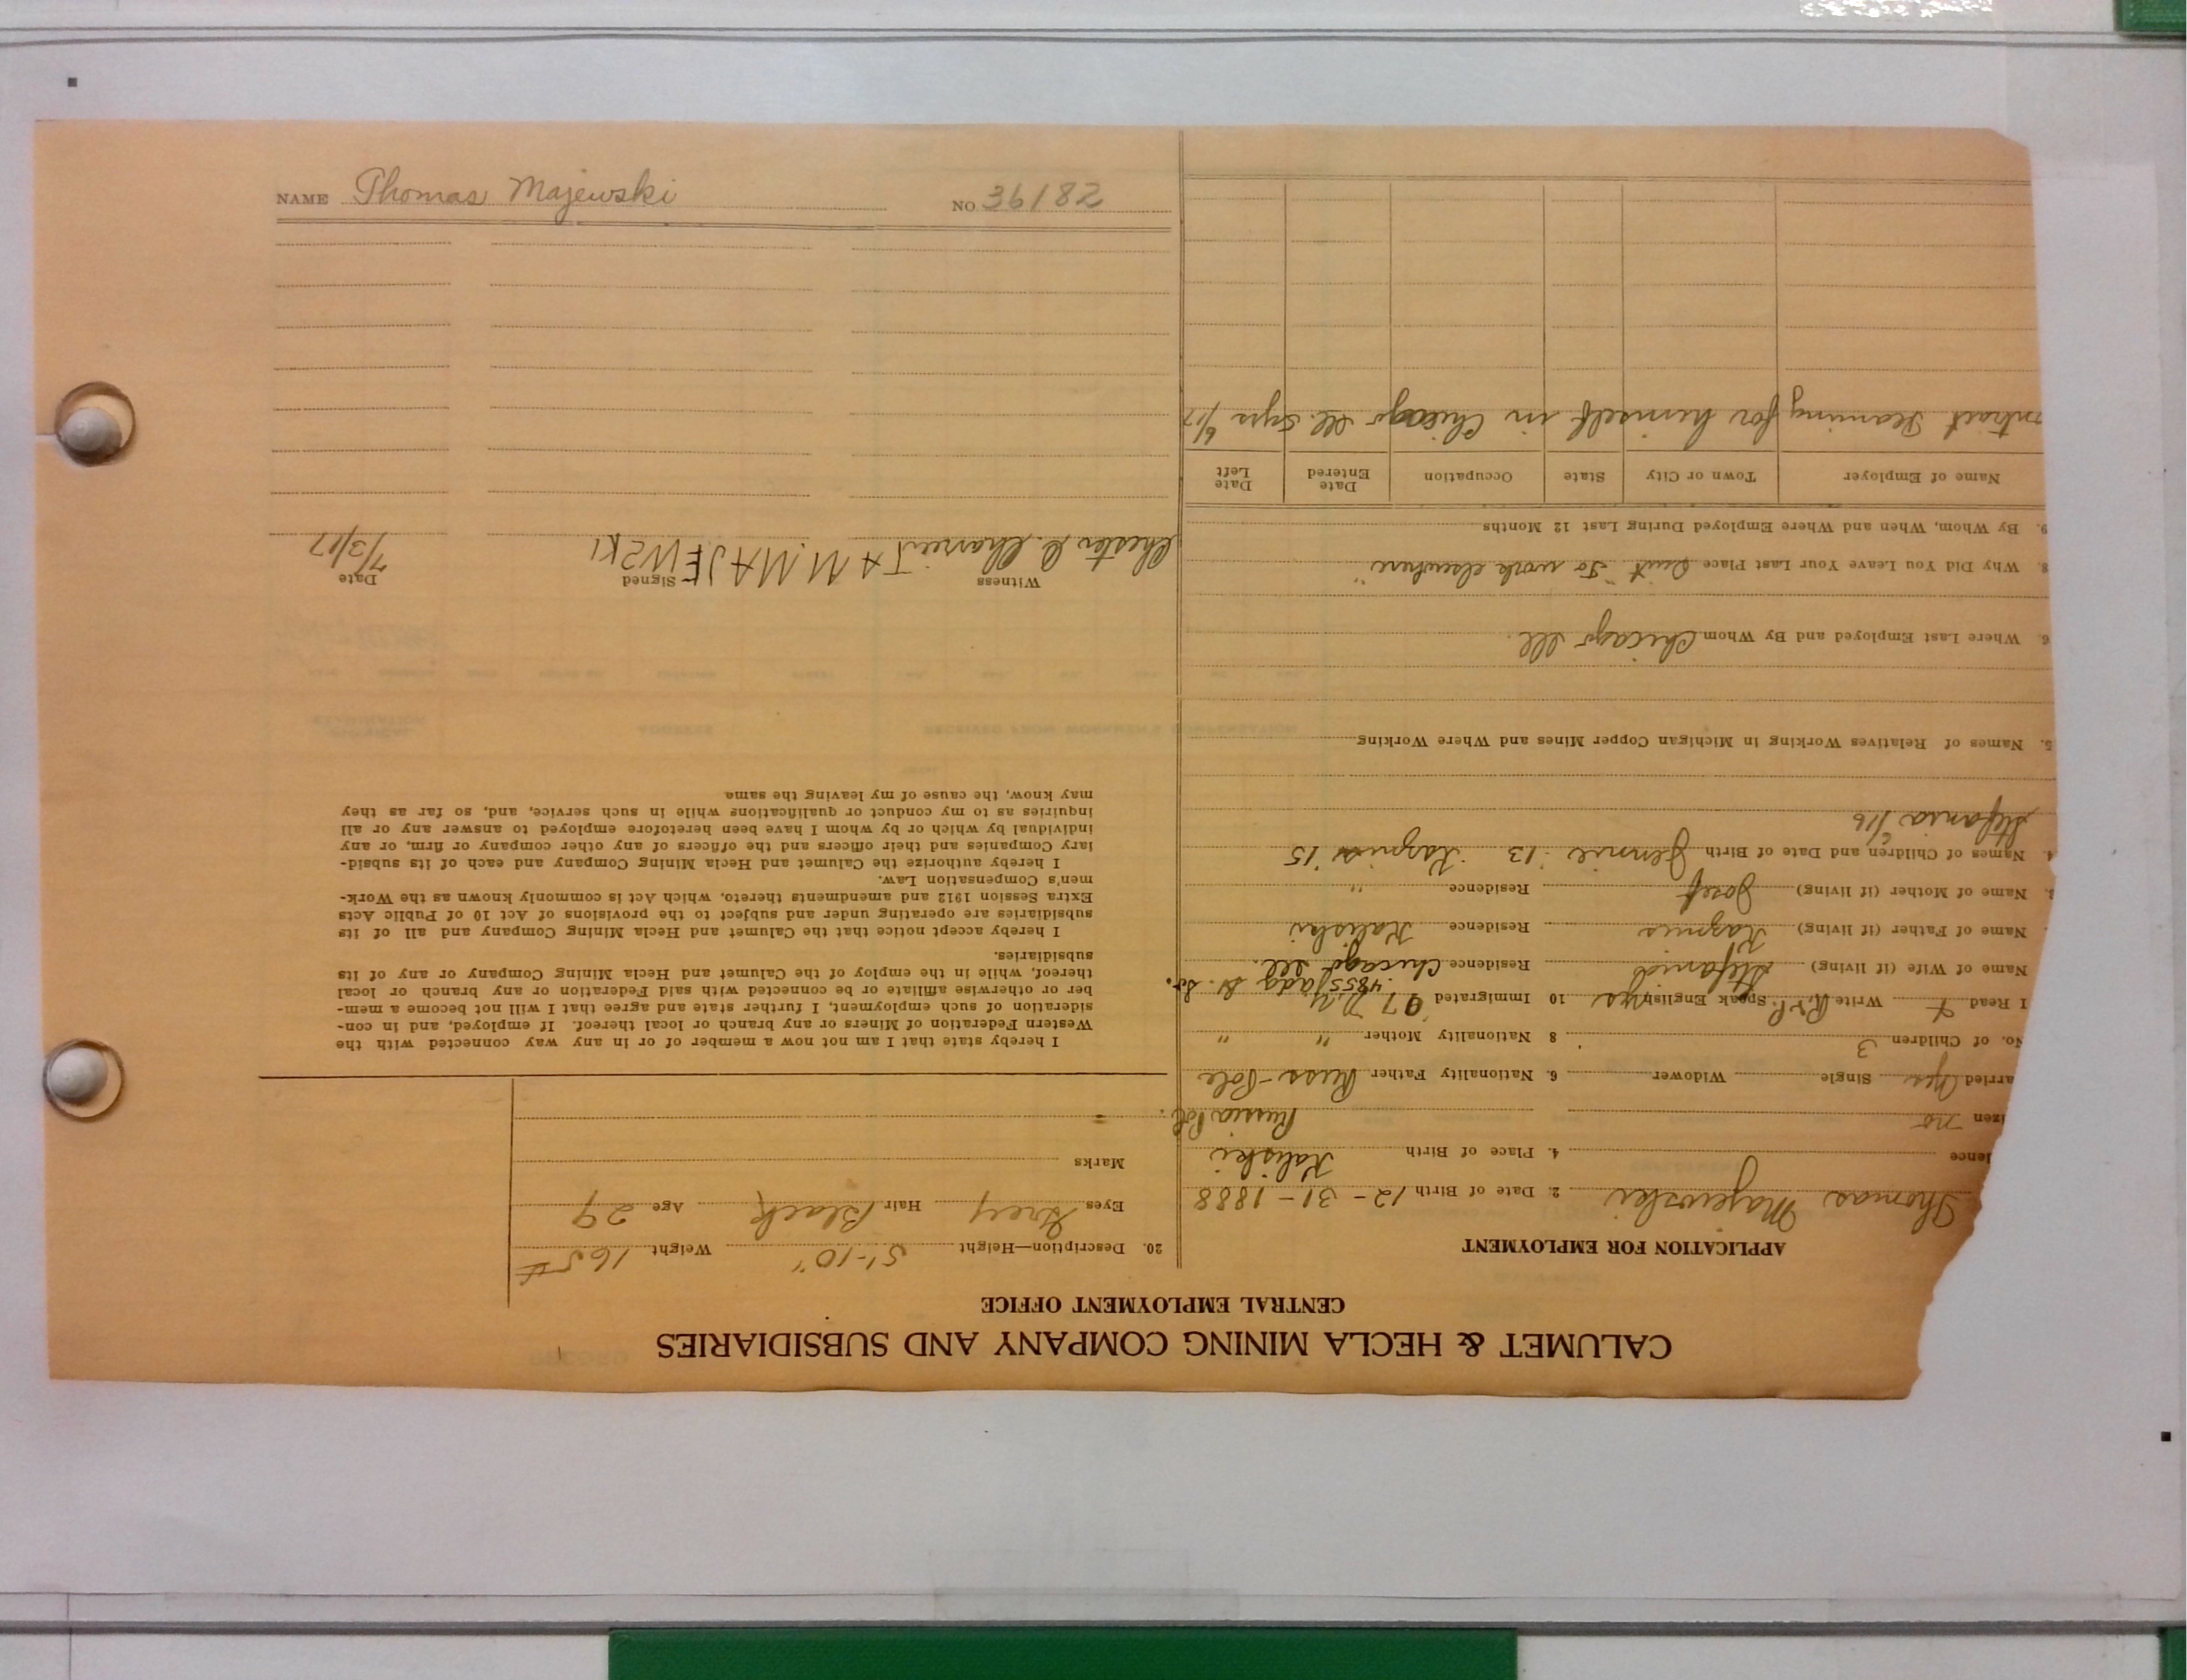 CALUMET & HECLA MINING COMPANY AND SUBSIDIARIES
CENTRAL EMPLOYMENT OFFICE
APPLICATION FOR EMPLOYMENT
Thomas Majewski 2. Date of Birth 12-31-1888
dence 4. Place of Birth Kaliski
izen no Russia Pol.
arried Yes Single Widower 6. Nationality Father Russ-Pole
No. of Children 3 8 Nationality Mother " "
I Read Write R.&P. Speak English yes 10 Immigrated '07 N.Y.
Name of Wife (if living) Stefania Residence 4855 St. So. Chicago Ill.
Name of Father (if living) Kazmis Residence Kaliski
3. Name of Mother (if living) Josef Residence "
4. Names of Children and Date of Birth Jennie '13 Kazmis '15
Stefania 6/16
5. Names of Relatives Working in Michigan Copper Mines and Where Working
6. Where Last Employed and By Whom Chicago Ill.
8. Why Did You Leave Your Last Place Quit "To work elsewhere"
9. By Whom, When and Where Employed During Last 12 Months
Name of Employer Town or City State Occupation Date Entered Date Left
ntract Teaming for himself in Chicago Ill. 5yrs 6/17
20. Description—Height 5'-10" Weight 165#
Eyes Grey Hair Black Age 29
Marks
I hereby state that I am not now a member of or in any way connected with the
Western Federation of Miners or any branch or local thereof. If employed, and in con-
sideration of such employment, I further state and agree that I will not become a mem-
ber or otherwise affiliate or be connected with said Federation or any branch or local
thereof, while in the employ of the Calumet and Hecla Mining Company or any of its
subsidiaries.
I hereby accept notice that the Calumet and Hecla Mining Company and all of its
subsidiaries are operating under and subject to the provisions of Act 10 of Public Acts
Extra Session 1912 and amendments thereto, which Act is commonly known as the Work-
men's Compensation Law.
I hereby authorize the Calumet and Hecla Mining Company and each of its subsid-
iary Companies and their officers and the officers of any other company or firm, or any
individual by which or by whom I have been heretofore employed to answer any or all
inquiries as to my conduct or qualifications while in such service, and, so far as they
may know, the cause of my leaving the same
Witness Signed Date
Chester C. TAM.MAJEWZKI 7/3/17
NAME Thomas Majewski NO 36182